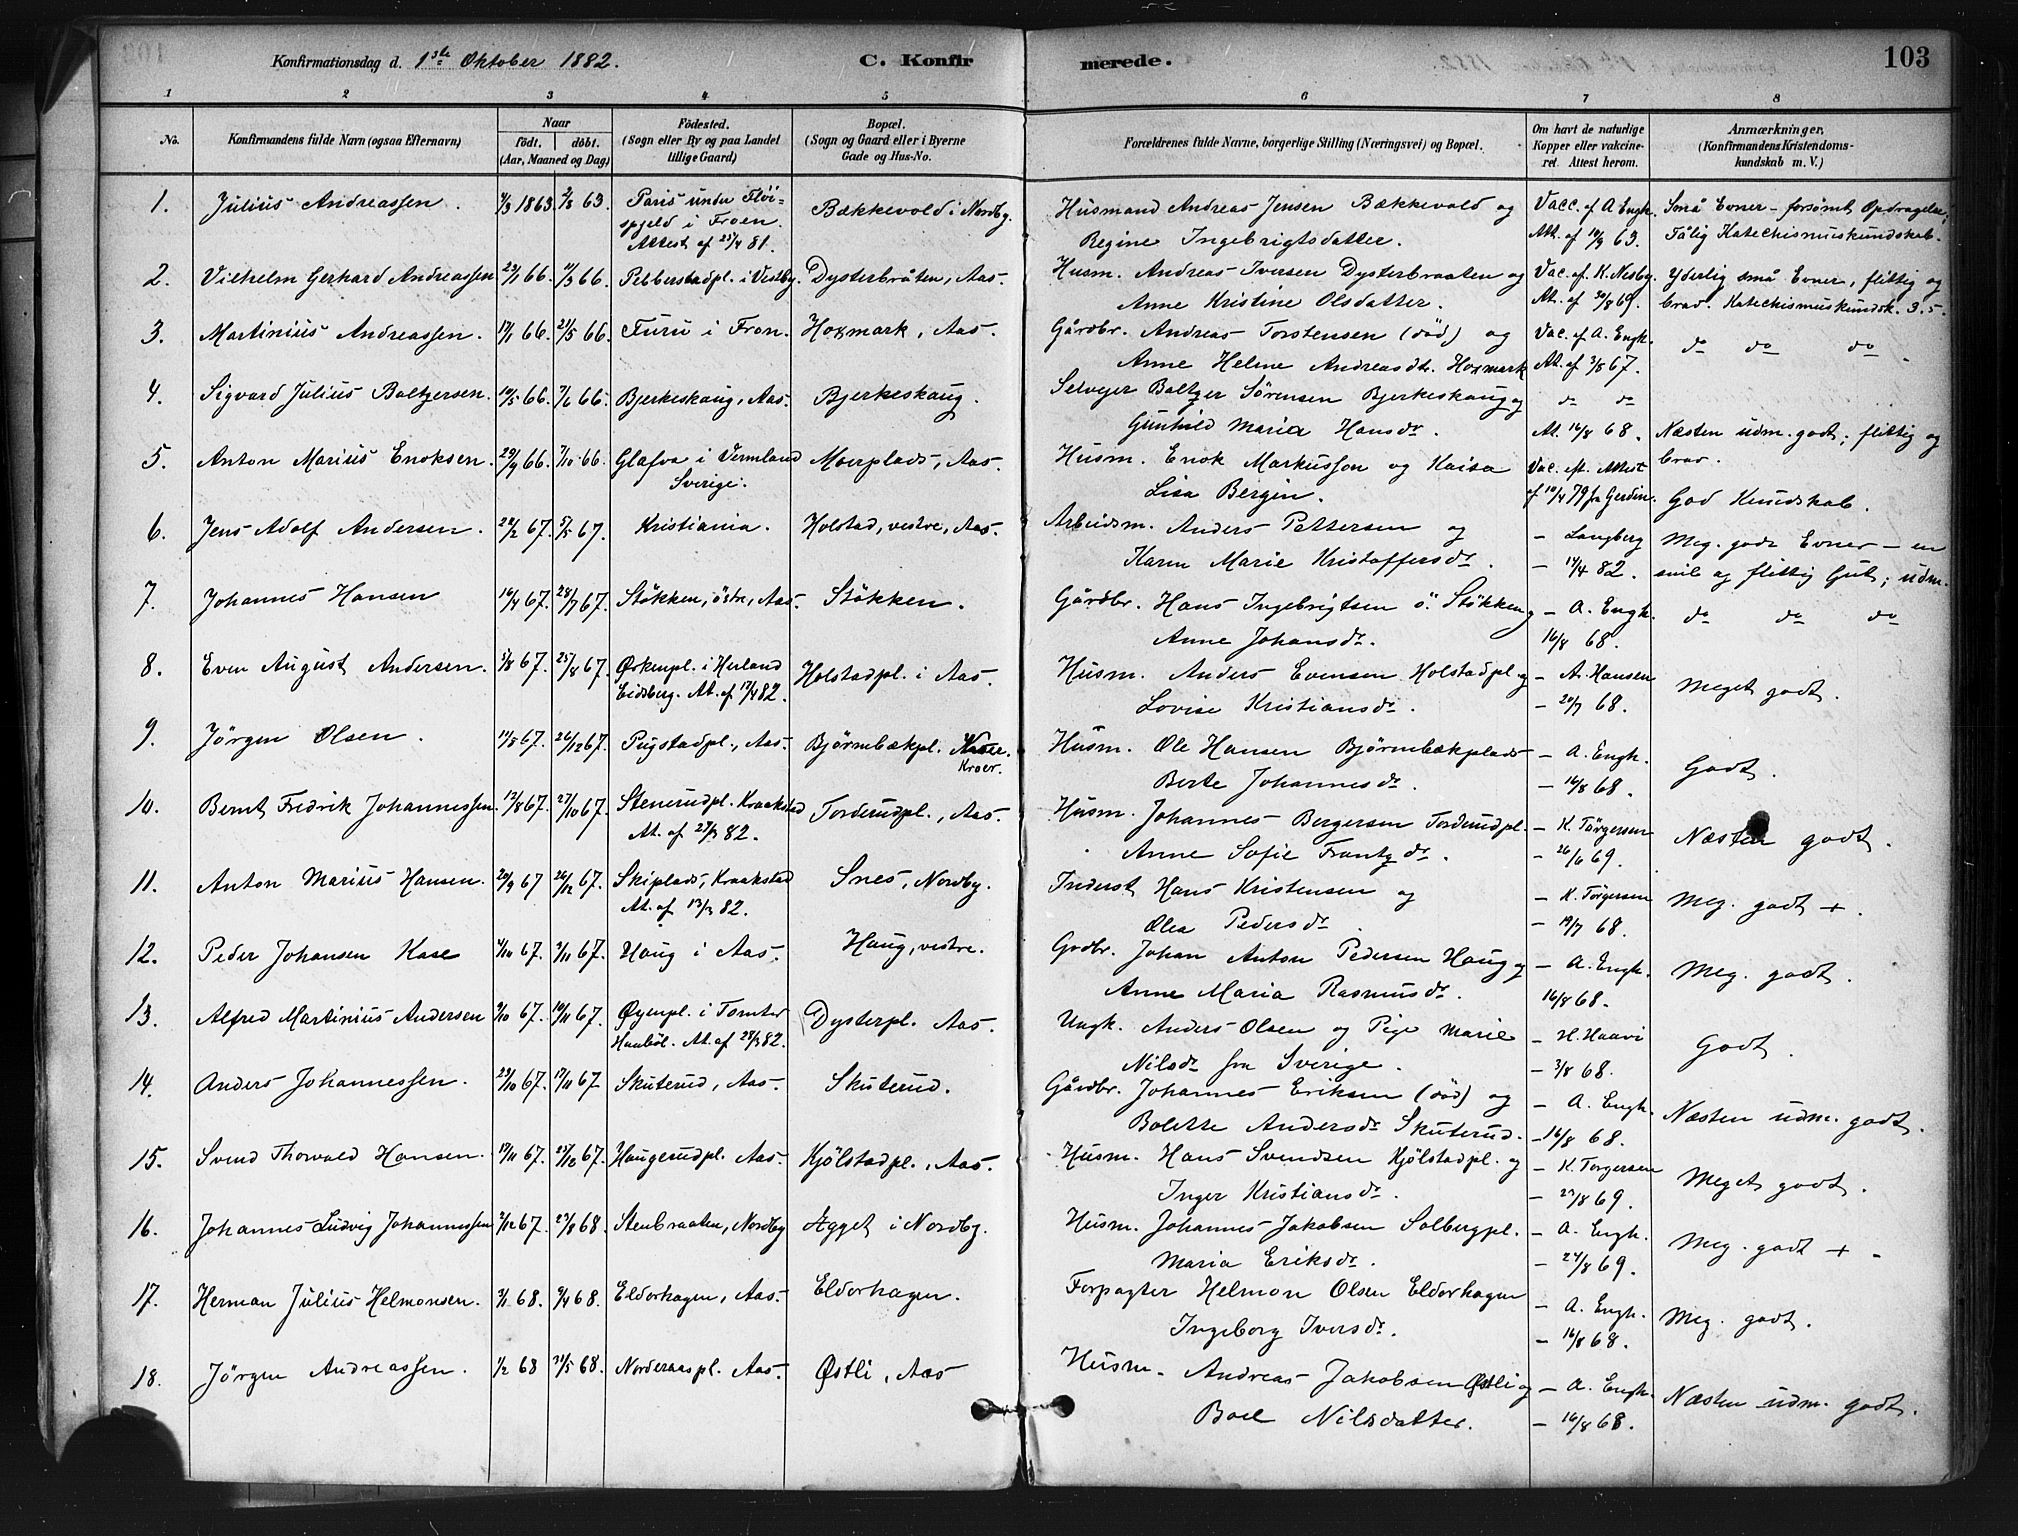 Konfirmationsdag d. 1ste Oktober 1882. C. Konfirmerede. 103
1 2 3 4 5 6 7 8
No. Konfirmandens fulde Navn (ogsaa Efternavn) Naar født. døbt. (Aar, Maaned og Dag) Fødested. (Sogn eller By og paa Landet tillige Gaard) Bopæl. (Sogn og Gaard eller i Byerne Gade og Hus-No. Forældrenes fulde Navne, borgerlige Stilling (Næringsvei) og Bopæl. Om havt de naturlige Kopper eller vakcineret. Attest herom. Anmærkninger, (Konfirmandens Kristendomskundskab m. V.)
1. Julius Andreassen. 1863. 63. Paris under Fløi= Bækkevold i Nordby. Husmand Andreas Jensen Bækkevold og Vacc. af A. Engh. Små Evner – forsømt Opdragelse;
spjeld i Froen. Attest af 25/4 81. Regine Ingebrigtsdatter. Att. af 63. Tålig Katechismuskundskab.
2. Vilhelm Gerhard Andreassen 66. 11/3 66. Pebberstadpl. i Vestby. Dysterbråten, Aas. Husm. Andreas Iversen Dysterbraaten og Vac. af K. Nesby. Yderlig små Evner, flittig og
Anne Kristine Olsdatter. At. af 30/8 69. brav. Katechismuskundsk. 3.5.
3. Martinius Andreassen. 17/1 66. 21/5 66. Furu i Fron. Hoxmark, Aas. Gårdbr. Andreas Torstensen (död) og Vac. af A. Engh. do do do
Anne Helene Andreasdtr. Hoxmark At. af 3/8 67.
4. Sigvard Julius Baltzersen. 10/5 66. 7/6 66. Bjerkeskaug, Aas. Bjerkeskaug. Selvejer Baltzer Sørensen Bjerkeskaug og do do
Gunhild Maria Hansdr. At. 16/8 68. Næsten udm. godt; flittig og
5. Anton Marius Enoksen. 29/9 66. 7/10 66. Glafva i Vermland Moerplads, Aas. Husm. Enok Markusson og Kaisa Vac. eft. Attest brav.
Sverige. Lisa Bergin. af 10/4 79 fra Gerdin. God Kundskab.
6. Jens Adolf Andersen. 22/2 67. 67. Kristiania. Holstad, vestre, Aas. Arbeidsm. Anders Pettersen og – Langberg Meg. gode Evner – en
Karen Marie Kristoffersdr. – 17/4 82. snil og flittig Gut; udm.
7. Johannes Hansen 16/4 67. 28/7 67. Støkken, östre, Aas. Støkken. Gårdbr. Hans Ingebrigtsen ö. Støkken og – A. Engh. do do do
Anne Johansdr. 16/8 68.
8. Even August Andersen. 67. 25/8 67. Ørkenpl. i Herland Holstadpl. i Aas. Husm. Anders Evensen Holstadpl. og – A. Hansen Meget godt.
Eidsberg. At. af 17/4 82. Lovise Kristiansdr. – 20/7 68.
9. Jørgen Olsen. 11/8 67. 26/12 67. Pugstadpl., Aas. Bjørnebækpl. Kroer. Husm. Ole Hansen Bjørnebækplads – A. Engh. Godt.
Kroer. Berte Johannesdr. – 16/8 68.
10. Bernt Fredrik Johannessen. 12/8 67. 27/10 67. Stenerudpl. Kraakstad Torderudpl., Aas. Husm. Johannes Bergersen Torderudpl. – K. Törgersen Næsten godt.
At. af 27/3 82. Anne Sofie Frantzdr. – 26/6 69.
11. Anton Marius Hansen. 20/9 67 26/12 67. Skiplads, Kraakstad Snes, Nordby. Inderst Hans Kristensen og – K. Törgersen Meg. godt +.
At. af 13/3 82. Olea Pedersdr. – 19/7 68.
12. Peder Johansen Kase 4/10 67. 3/11 67. Haug i Aas. Haug, vestre. Grdbr. Johan Anton Pedersen Haug og – A. Engh. Meg. godt.
Anne Maria Rasmusdr. 16/8 68.
13. Alfred Martinius Andersen 9/10 67. 10/11 67. Øyenpl. i Tomter Dysterpl. Aas. Ungk. Anders Olsen og Pige Marie – H. Haavi Godt.
Haabøl. At. af 28/3 82. Nilsdr fra Sverige. – 3/8 68.
14. Anders Johannessen. 29/10 67. 17/11 67. Skuterud, Aas. Skuterud. Gårdbr. Johannes Eriksen (död) og – A. Engh. Næsten udm. godt.
Bolette Andersdr Skuterud. – 16/8 68.
15. Svend Thorvald Hansen. 19/11 67. 25/12 67. Haugerudpl. Aas. Kjølstadpl., Aas. Husm. Hans Svendsen Kjølstadpl. og – K. Torgersen Meget godt.
Inger Kristiansdr. – 27/8 69.
16. Johannes Ludvig Johannessen 2/12 67. 23/8 68. Stenbraaten, Nordby Agget i Nordby. Husm. Johannes Jakobsen Solbergpl. – A. Engh. Meg. godt + –
Maria Eriksdr. – 27/8 69.
17. Herman Julius Helmonsen. 3/1 68. 9/4 68. Elderhagen, Aas. Elderhagen. Forpagter Helmon Olsen Elderhagen – A. Engh. Meg. godt.
Ingeborg Iversdr. – 16/8 68.
18. Jørgen Andreassen. 1/2 68 31/5 68. Norderaaspl. Aas. Østli, Aas Husm. Andreas Jakobsen Østli og – A. Engh. Næsten udm. godt.
Boel Nilsdatter. – 16/8 68.